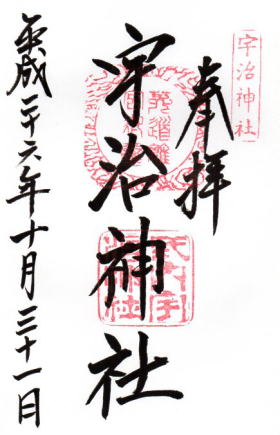 宇治神社
奉拝
宇治神社
平成二十六年十月三十一日